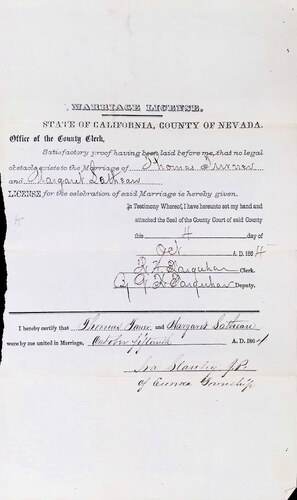 MARRIAGE LICENSE.
STATE OF CALIFORNIA, COUNTY OF NEVADA.
Office of the County Clerk,
Satisfactory proof having been laid before me, that no legal
obstacle exists to the Marriage of Thomas
and Margaret
LICENSE for the celebration of said Marriage is hereby given.
In Testimony Whereof, I have hereunto set my hand and
attached the Seal of the County Court of said County
this 4 day of
Oct A. D. 1864
R. H. Farquhar Clerk.
By G. K. Farquhar Deputy.
I hereby certify that Thomas and Margaret
were by me united in Marriage, October A. D. 1864
Ira Stanley J.P.
of Eureka Township